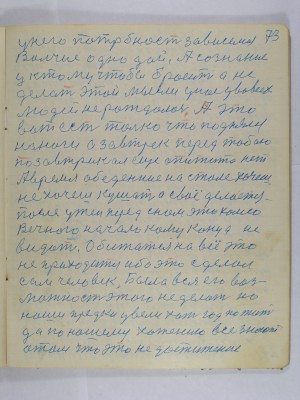 у него потребност зависимая 73
Волчие одно дай, А сознание
у к тому чтобы бросить а не
делат этой мысли у ново у всех
людей не рождалос, А это
ват ест только что поднялся
на ноги а завтрак перед тобою
позавтракал еще опитита нет
А время обеденное на столе хочеш
не хочеш кушат, а своё делаеш
после ужен перед сном это колесо
Вечного начало кому конца не
видат. Обижатся на всё это
не приходится ибо это сделал
сам человек, Была вся его воз-
можност этого не делат но
наши предки увели хот год пожит
да по нашему хотению все знают
о том что это не достижение